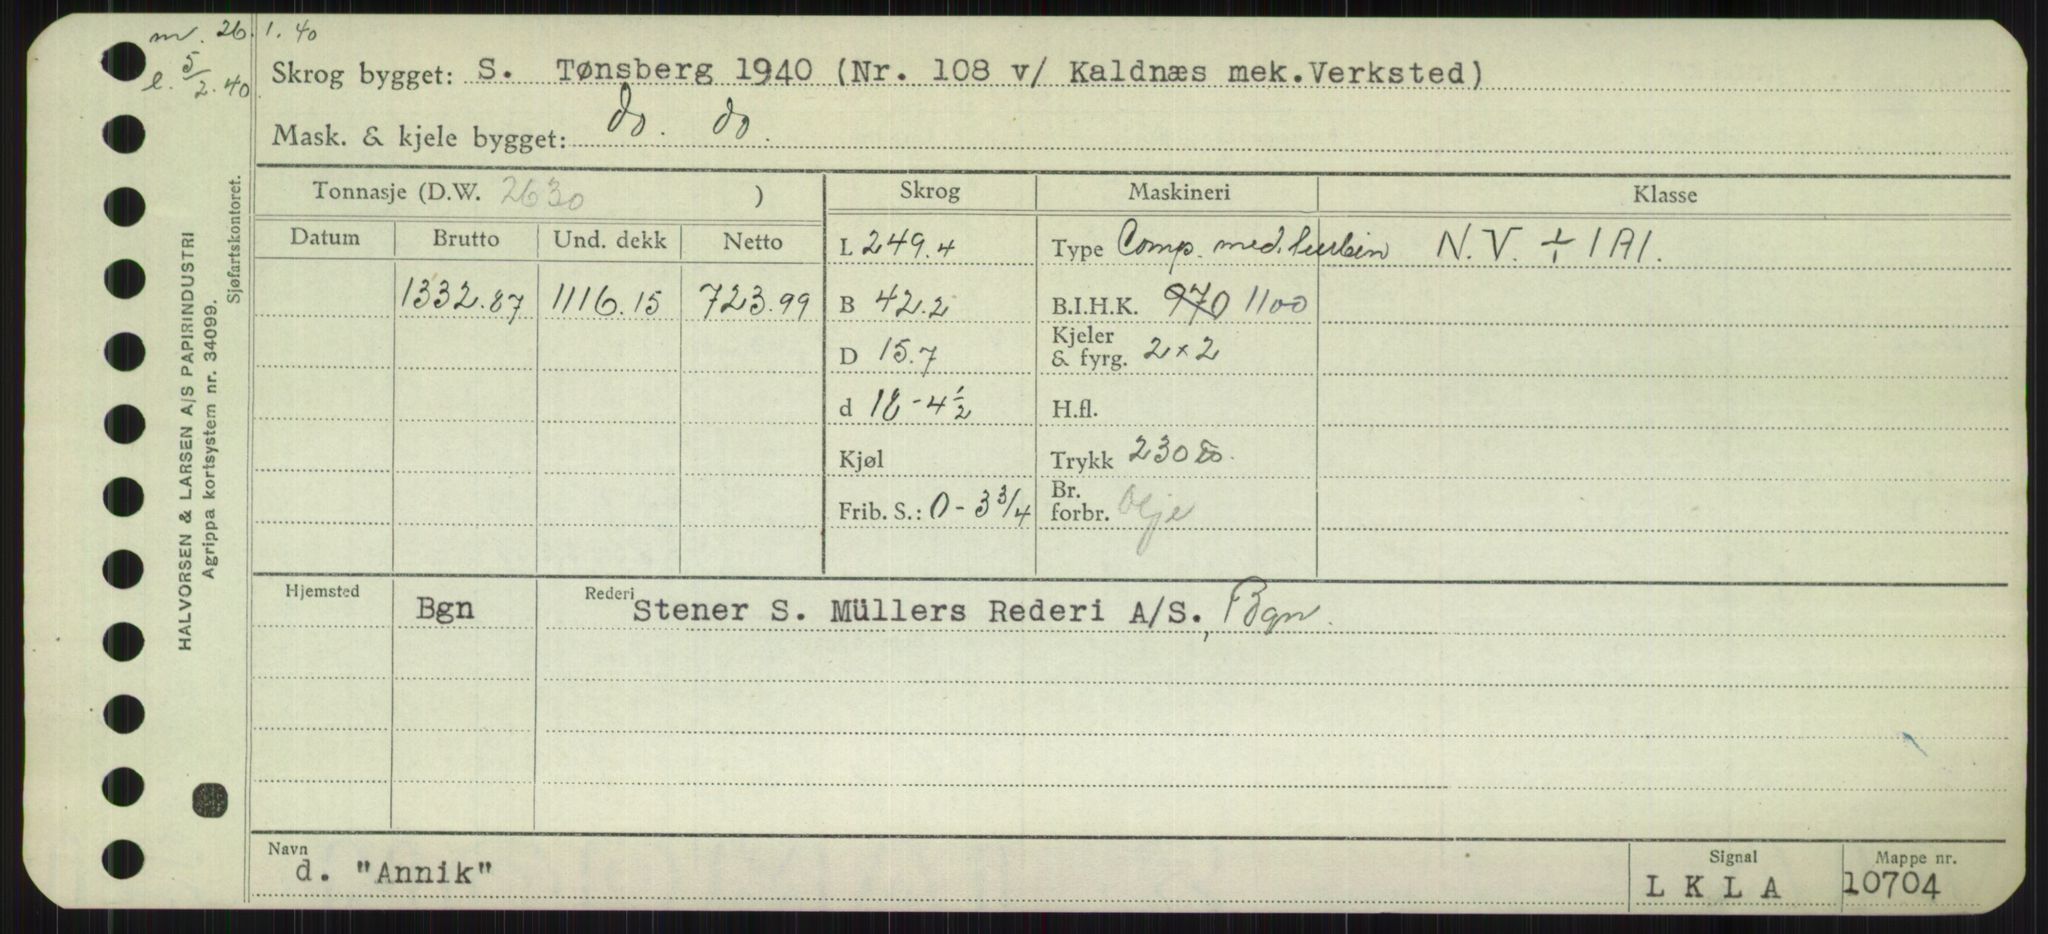 m. 26. 1. 40
l. 5/2. 40
Skrog bygget: S. Tønsberg 1940 (Nr. 108 v/ Kaldnæs mek.Verksted)
Mask. & kjele bygget: do. do.
HALVORSEN & LARSEN A/S PAPIRINDUSTRI
Agrippa kortsystem nr. 34099.
Sjøfartskontoret.
Tonnasje (D.W. 2630 ) Skrog Maskineri Klasse
Datum Brutto Und. dekk Netto L 249.4 Type Comp. med. turbin N.V. + 1A1.
1332.87 1116.15 723.99 B 42.2 B.I.H.K. 970 1100
D 15.7 Kjeler & fyrg. 2 x 2
d 18 - 4 1/2 H.fl.
Kjøl Trykk 230
Frib. S.: 0 - 3 3/4 Br. forbr. Olje
Hjemsted Bgn Rederi Stener S. Müllers Rederi A/S., Bgn.
Navn Signal Mappe nr.
d. "Annik" L K L A 10704